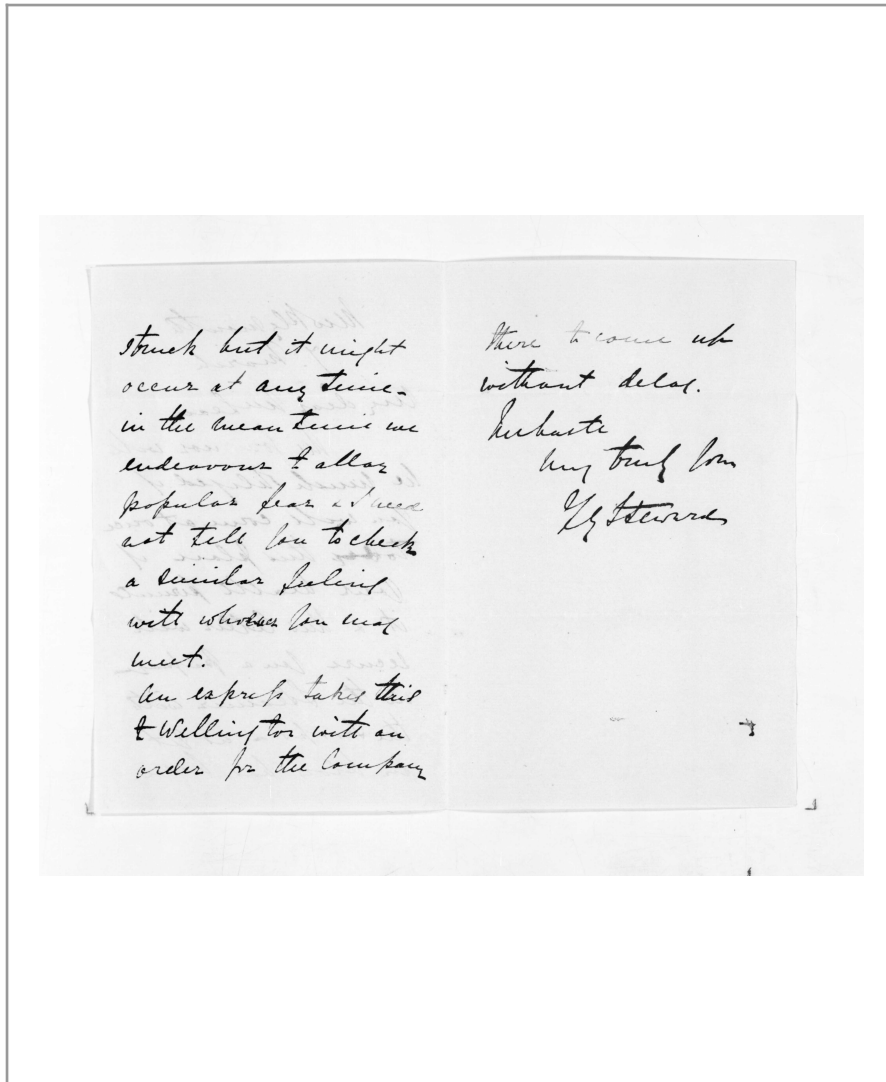 struck but it might
occur at any time -
in the mean time we
endeavour to allay
popular fear & I need
not tell you to check
a similar feeling
with whomever you may
meet.
An express takes this
to Wellington with an
order for the Company
there to come up
without delay.
In haste
very truly yours
Steward